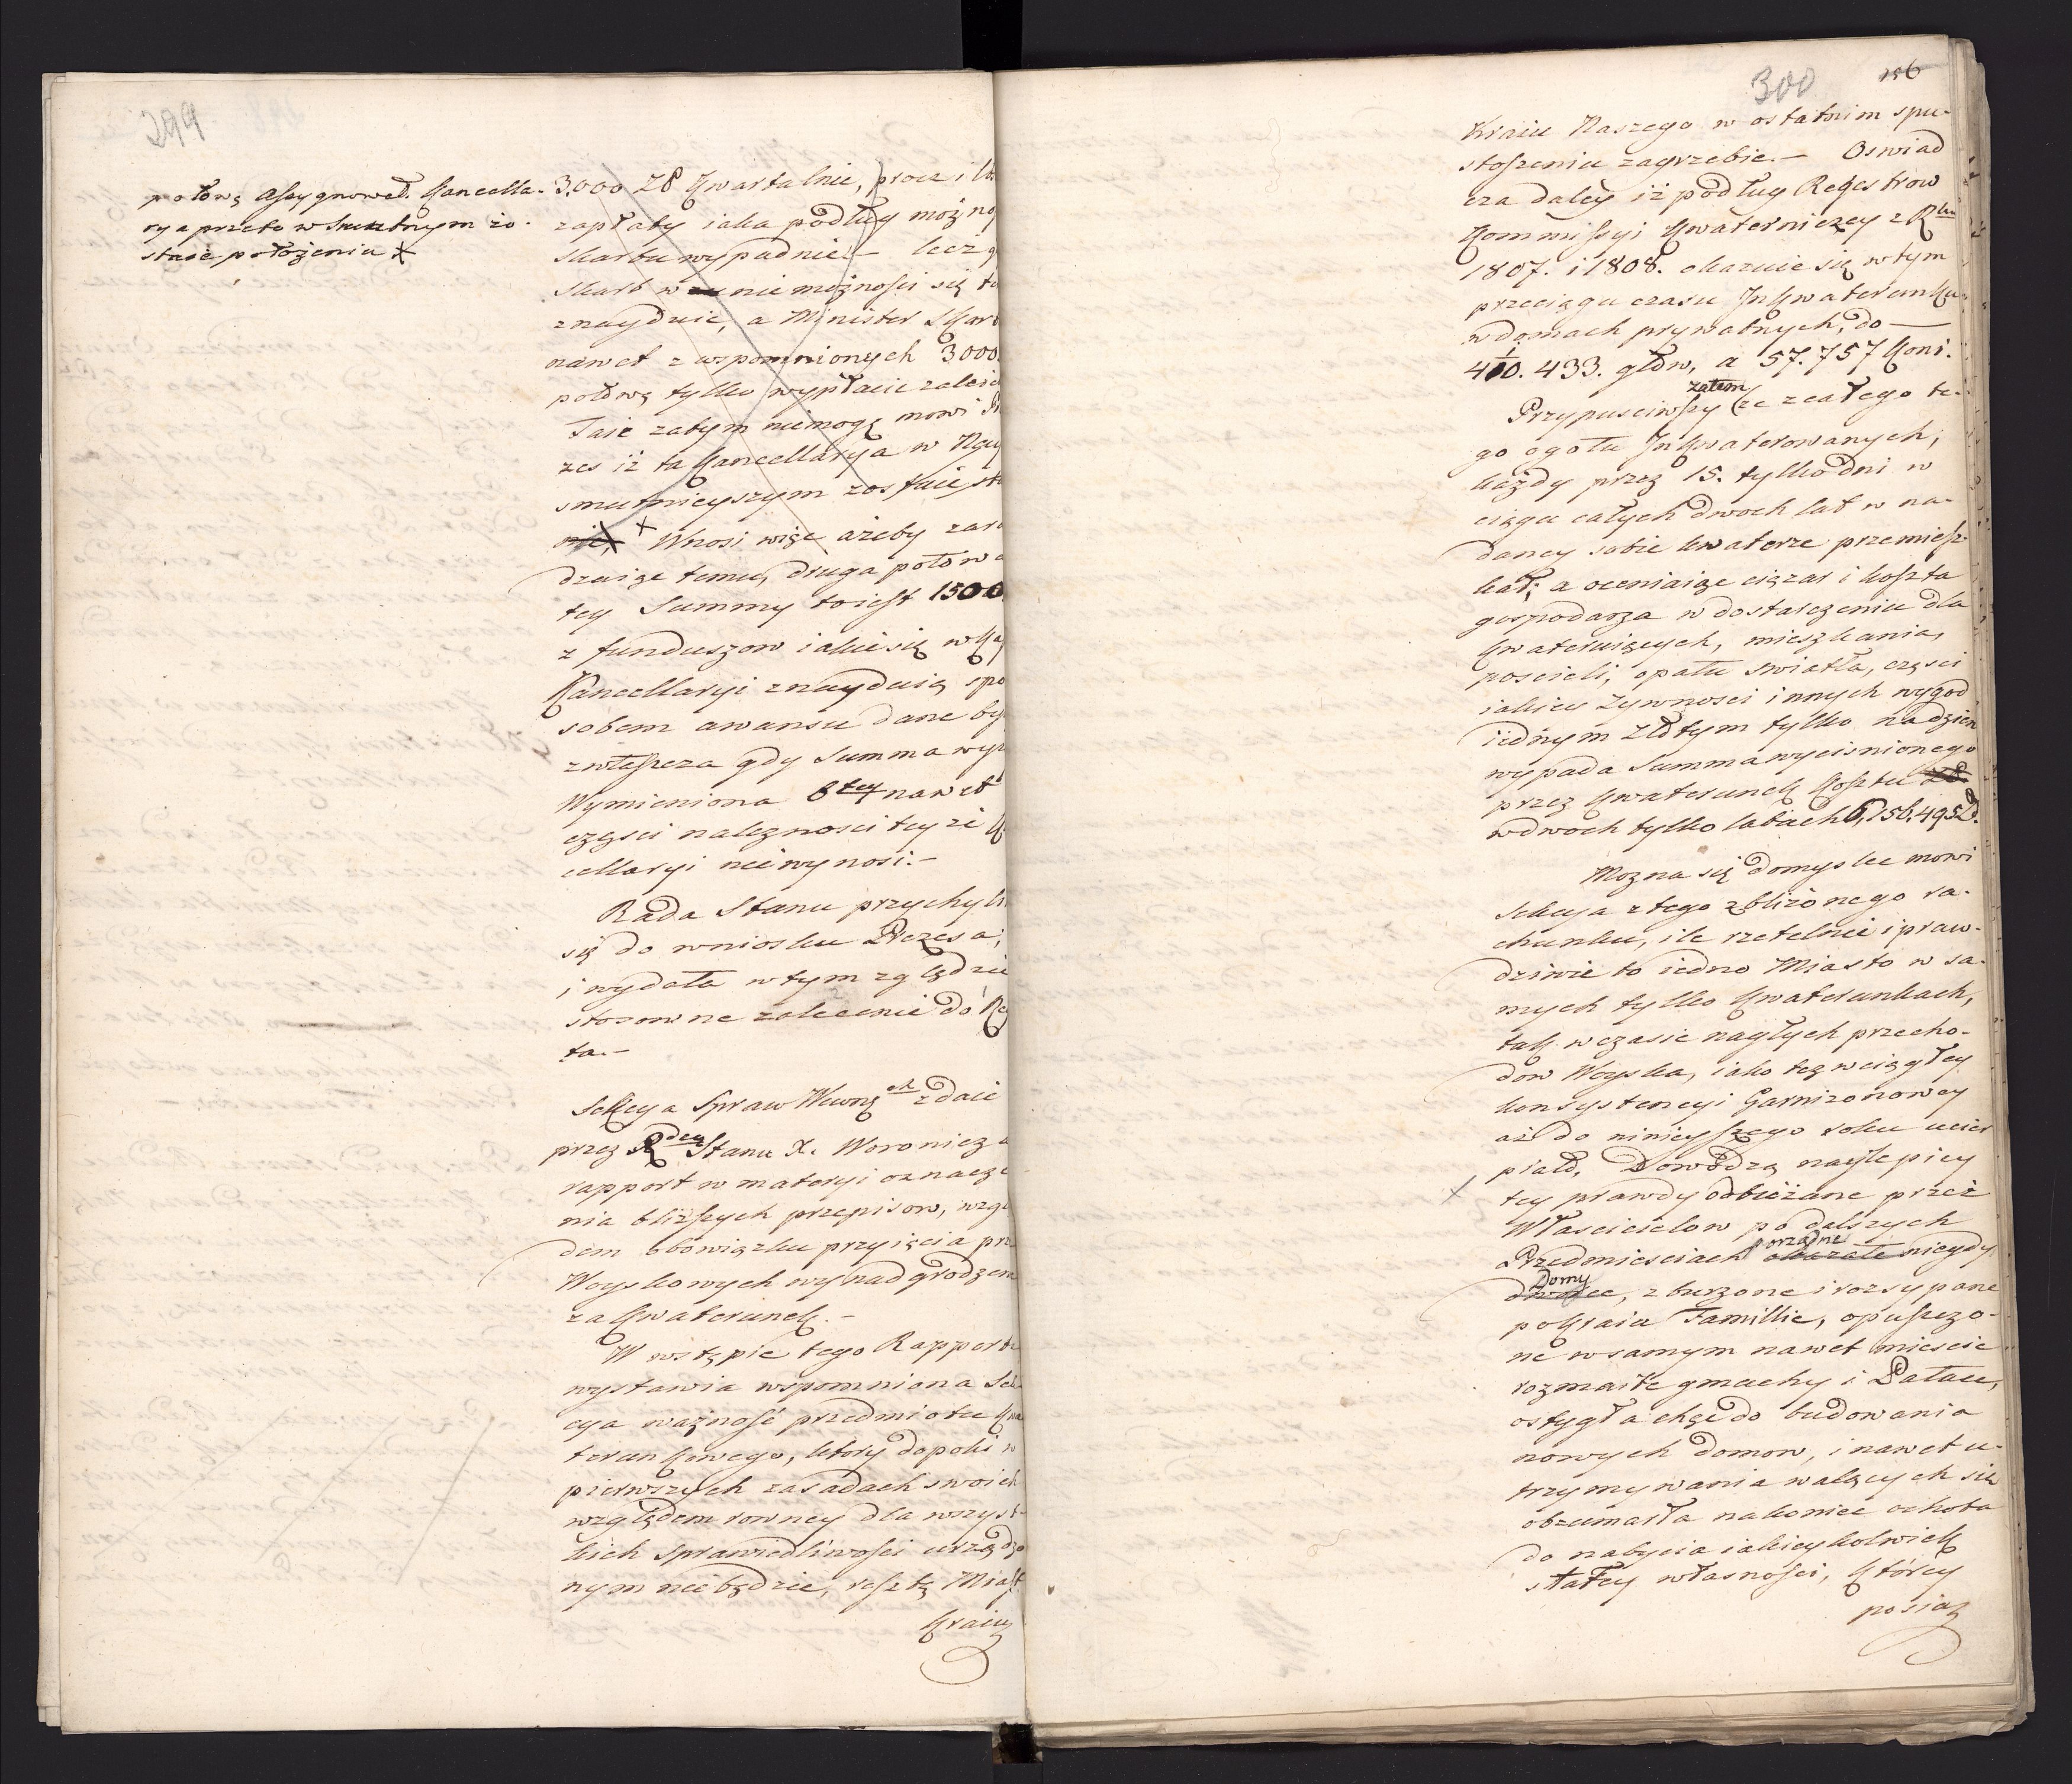 299
połowę assygnował. Kancella-
rya przeto w smutnym zo-
staie położeniu X
3.000 Zł Kwartalnie, procz i
zapłaty iaka podług możno
Skarbu wypadnie. – lecz
Skarb w nie możności się
znayduie, a Minister Skar
nawet z wspomnionych 3000.
połowę tylko wypłacić zaleci
Taić zatym niemogę mowi
zes iż ta Kancellarya w Nay
smutnieyszym zostaie
X Wnosi więc ażeby zara
dzaiąc temu, druga połow
tey Summy toiest 1500
z funduszow iakie się w
Kancellaryi znayduią spo
sobem awansu dane by
zwłaszcza gdy Summa wy
Wymieniona 8tey nawet
częsci naleznosci teyże
cellaryi nie wynosi. –
Rada Stanu przychyli
się do wniosku Prezesa;
i wydała w tym względzie
stosowne zalecenie do Re
ta. –
Sekcya Spraw Wewnęch zdaie
przez Rdcę Stanu X. Woronicza
rapport w materyi oznacze
nia bliższych przepisow, wzgl
dem obowiązku przyięcia prz
Woyskowych wynadgrodzen
za Kwaterunek. –
W wstępie tego Rapportu
wystawia wspomniona Sek-
cya ważność przedmiotu Kwa
terunkowego, ktory dopoki w
pierwszych zasadach swoich
względem rowney dla wszyst-
kich sprawiedliwości urządzo
nym nie będzie, resztę Miast
Kraiu
300
156
Kraiu Naszego w ostatnim spu-
stoszeniu zagrzebie. – Oswiad
cza daley iż podług Regestrow
Kommissyi Kwaterniczey z Rku
1807. i 1808. okazuie się w tym
przeciągu czasu InKwaterunku
w domach prywatnych, do —
410.433. głow, a 57.757 Koni.
Przypusciwszy zatem że z całego te-
go ogołu InKwaterowanych,
każdy przez 15. tylko dni w
ciągu całych dwoch lat w na-
daney sobie kwaterze przemiesz-
kał; a oceniaiąc ciężar i koszta
gospodarza w dostarczeniu dla
Kwateruiących, mieszkania,
poscieli, opału swiatła, częsci
iakiey Żywnosci innych wygod
iednym Złotym tylko na dzien
wypada Summa wycisnionego
przez Kwaterunek Kosztu
w dwoch tylko latach 6,156.495 Zł.
Mozna się domyslec mowi
Sekcya z tego zbliżonego ra-
chunku, ile rzetelnie i praw-
dziwie to iedno Miasto w sa-
mych tylko Kwaterunkach,
tak w czasie nagłych przecho-
dow Woyska, iako tez w ciągłey
konsystencyi Garnizonowey
aż do ninieyszego roku ucier
piało. Dowodzą naylepiey
X tey prawdy odbieżane przez
Własciciolow po dalszych
Przedmiesciach porządne okazałe niegdy
Domy dworce, zburzone i rozsypane
po Kraiu Familie, opuszczo-
ne w samym nawet miescie
rozmaite gmachy i Pałace,
ostygła chęc do budowania
nowych domow, i nawet u-
trzymywania walących się
obumarła nakoniec ochota
do nabycia iakieykolwiek
stałey własności, Którey
posiad